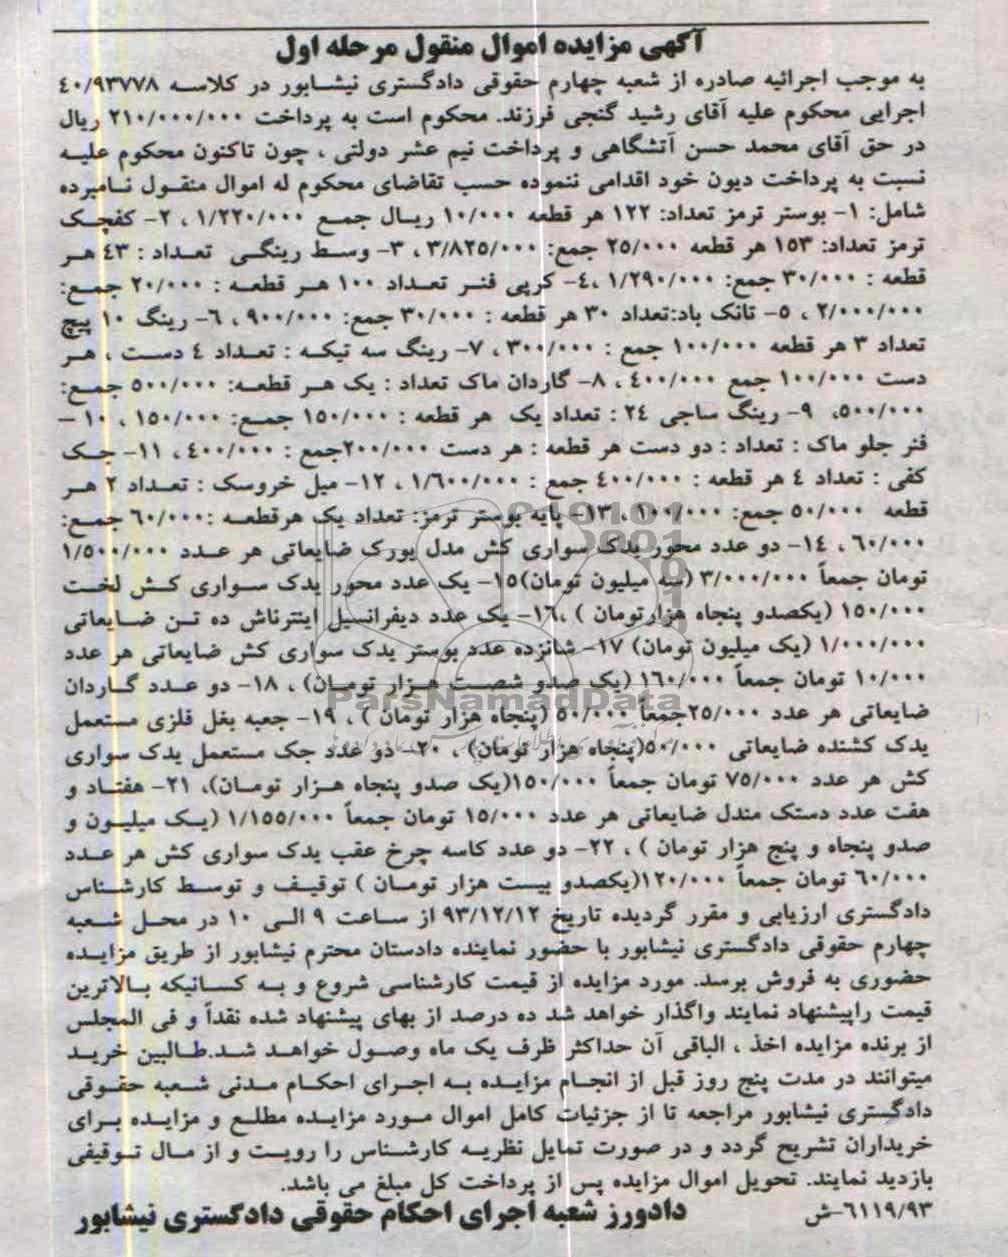 آگهی مزایده اموال منقول مرحله اول
به موجب اجرائیه صادره از شعبه چهارم حقوقی دادگستری نیشابور در کلاسه ۴۰/۹۳۷۷۸
اجرایی محکوم علیه آقای رشید گنجی فرزند. محکوم است به پرداخت ۲۱۰/۰۰۰/۰۰۰ ریال
در حق آقای محمد حسن آتشگاهی و پرداخت نیم عشر دولتی ، چون تاکنون محکوم علیه
نسبت به پرداخت دیون خود اقدامی ننموده حسب تقاضای محکوم له اموال منقول نامبرده
شامل: ۱- بوستر ترمز تعداد: ۱۲۲ هر قطعه ۱۰/۰۰۰ ریال جمع ۱/۲۲۰/۰۰۰ ، ۲- کفچک
ترمز تعداد: ۱۵۳ هر قطعه ۲۵/۰۰۰ جمع: ۳/۸۲۵/۰۰۰ ، ۳- وسط رینگی تعداد : ۴۳ هر
قطعه : ۳۰/۰۰۰ جمع: ۱/۲۹۰/۰۰۰ ،۴- کرپی فنر تعداد ۱۰۰ هر قطعه : ۲۰/۰۰۰ جمع:
۲/۰۰۰/۰۰۰ ، ۵- تانک باد:تعداد ۳۰ هر قطعه : ۳۰/۰۰۰ جمع: ۹۰۰/۰۰۰ ، ۶- رینگ ۱۰ پیچ
تعداد ۳ هر قطعه ۱۰۰/۰۰۰ جمع : ۳۰۰/۰۰۰ ، ۷- رینگ سه تیکه : تعداد ۴ دست ، هر
دست ۱۰۰/۰۰۰ جمع ۴۰۰/۰۰۰ ، ۸- گاردان ماک تعداد : یک هر قطعه: ۵۰۰/۰۰۰ جمع:
۵۰۰/۰۰۰، ۹- رینگ ساجی ۲۴ : تعداد یک هر قطعه : ۱۵۰/۰۰۰ جمع: ۱۵۰/۰۰۰ ، ۱۰ -
فنر جلو ماک : تعداد : دو دست هر قطعه : هر دست ۲۰۰/۰۰۰جمع : ۴۰۰/۰۰۰ ، ۱۱- جک
کفی : تعداد ۴ هر قطعه : ۴۰۰/۰۰۰ جمع : ۱/۶۰۰/۰۰۰ ، ۱۲- میل خروسک : تعداد ۲ هر
قطعه ۵۰/۰۰۰ جمع: ۱۰۰/۰۰۰ ، ۱۳- پایه بوستر ترمز: تعداد یک هرقطعه :۶۰/۰۰۰ جمع:
۶۰/۰۰۰ ، ۱۴- دو عدد محور یدک سواری کش مدل یورک ضایعاتی هر عدد ۱/۵۰۰/۰۰۰
تومان جمعاً ۳/۰۰۰/۰۰۰ (سه میلیون تومان)۱۵- یک عدد محور یدک سواری کش لخت
۱۵۰/۰۰۰ (یکصدو پنجاه هزارتومان ) ،۱۶- یک عدد دیفرانسیل اینترناش ده تن ضایعاتی
۱/۰۰۰/۰۰۰ (یک میلیون تومان) ۱۷- شانزده عدد بوستر یدک سواری کش ضایعاتی هر عدد
۱۰/۰۰۰ تومان جمعاً ۱۶۰/۰۰۰ (یک صدو شصت هزار تومان) ، ۱۸- دو عدد گاردان
ضایعاتی هر عدد ۲۵/۰۰۰جمعاً ۵۰/۰۰۰ (پنجاه هزار تومان ) ، ۱۹- جعبه بغل فلزی مستعمل
یدک کشنده ضایعاتی ۵۰/۰۰۰(پنجاه هزار تومان) ، ۲۰- دو عدد جک مستعمل یدک سواری
کش هر عدد ۷۵/۰۰۰ تومان جمعاً ۱۵۰/۰۰۰(یک صدو پنجاه هزار تومان)، ۲۱- هفتاد و
هفت عدد دستک مندل ضایعاتی هر عدد ۱۵/۰۰۰ تومان جمعاً ۱/۱۵۵/۰۰۰ (یک میلیون و
صدو پنجاه و پنج هزار تومان ) ، ۲۲- دو عدد کاسه چرخ عقب یدک سواری کش هر عدد
۶۰/۰۰۰ تومان جمعاً ۱۲۰/۰۰۰(یکصدو بیست هزار تومان ) توقیف و توسط کارشناس
دادگستری ارزیابی و مقرر گردیده تاریخ ۹۳/۱۲/۱۲ از ساعت ۹ الی ۱۰ در محل شعبه
چهارم حقوقی دادگستری نیشابور با حضور نماینده دادستان محترم نیشابور از طریق مزایده
حضوری به فروش برسد. مورد مزایده از قیمت کارشناسی شروع و به کسانیکه بالاترین
قیمت راپیشنهاد نمایند واگذار خواهد شد ده درصد از بهای پیشنهاد شده نقداً و فی المجلس
از برنده مزایده اخذ ، الباقی آن حداکثر ظرف یک ماه وصول خواهد شد.طالبین خرید
میتوانند در مدت پنج روز قبل از انجام مزایده به اجرای احکام مدنی شعبه حقوقی
دادگستری نیشابور مراجعه تا از جزئیات کامل اموال مورد مزایده مطلع و مزایده برای
خریداران تشریح گردد و در صورت تمایل نظریه کارشناس را رویت و از مال توقیفی
بازدید نمایند. تحویل اموال مزایده پس از پرداخت کل مبلغ می باشد.
۶۱۱۹/۹۳-ش دادورز شعبه اجرای احکام حقوقی دادگستری نیشابور
ParsNamadData